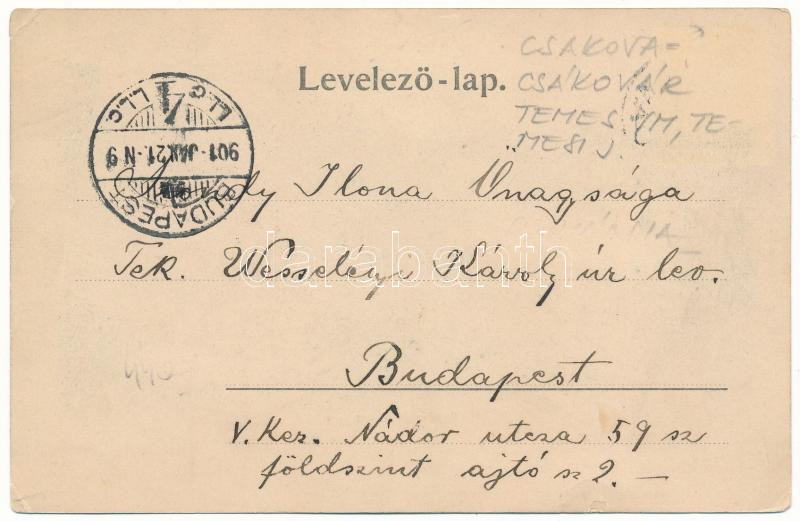 Levelező-lap.
CSAKOVA=
CSÁKOVÁR
TEMES VM, TE-
MESI J.
BUDAPEST
901 JAN. 21. N 9
LL.G LL.G
Ilona Önagysága
Tek. Wesselényi Károly úr lev.
darabanth
Budapest
V. Ker. Nádor utcza 59 sz
földszint ajtó sz 2. —